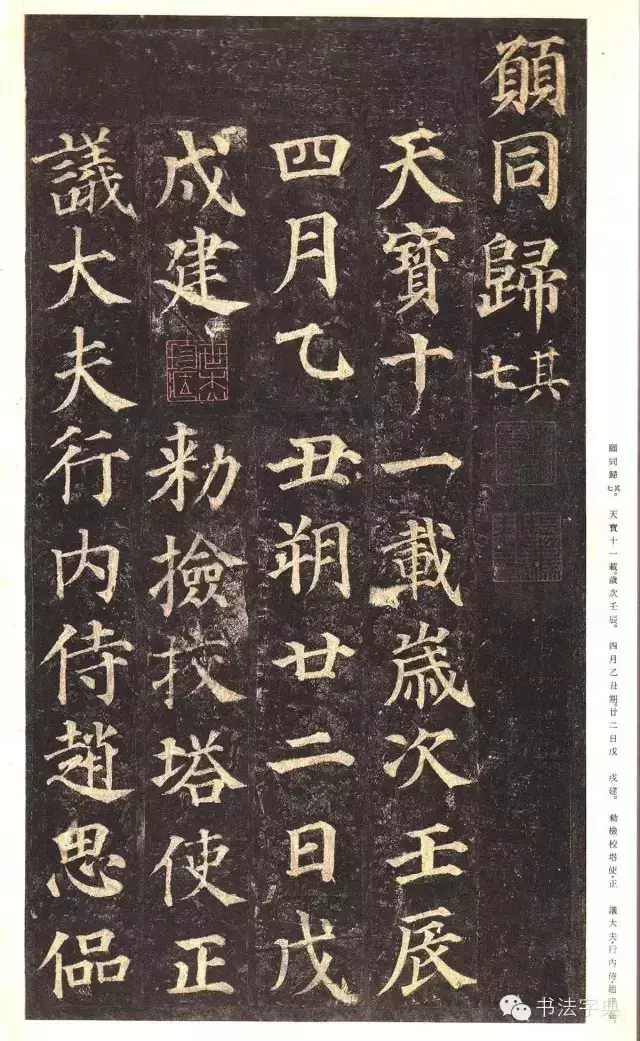 願同歸其七
天寶十一載歲次壬辰
四月乙丑朔廿二日戊
戌建 勑撿挍塔使正
議大夫行内侍趙思偘
願同歸其七。天寶十一載。歲次壬辰。四月乙丑朔。廿二日戊 戌建。勅檢校塔使・正 議大夫・行內侍・趙思偘。
书法字典